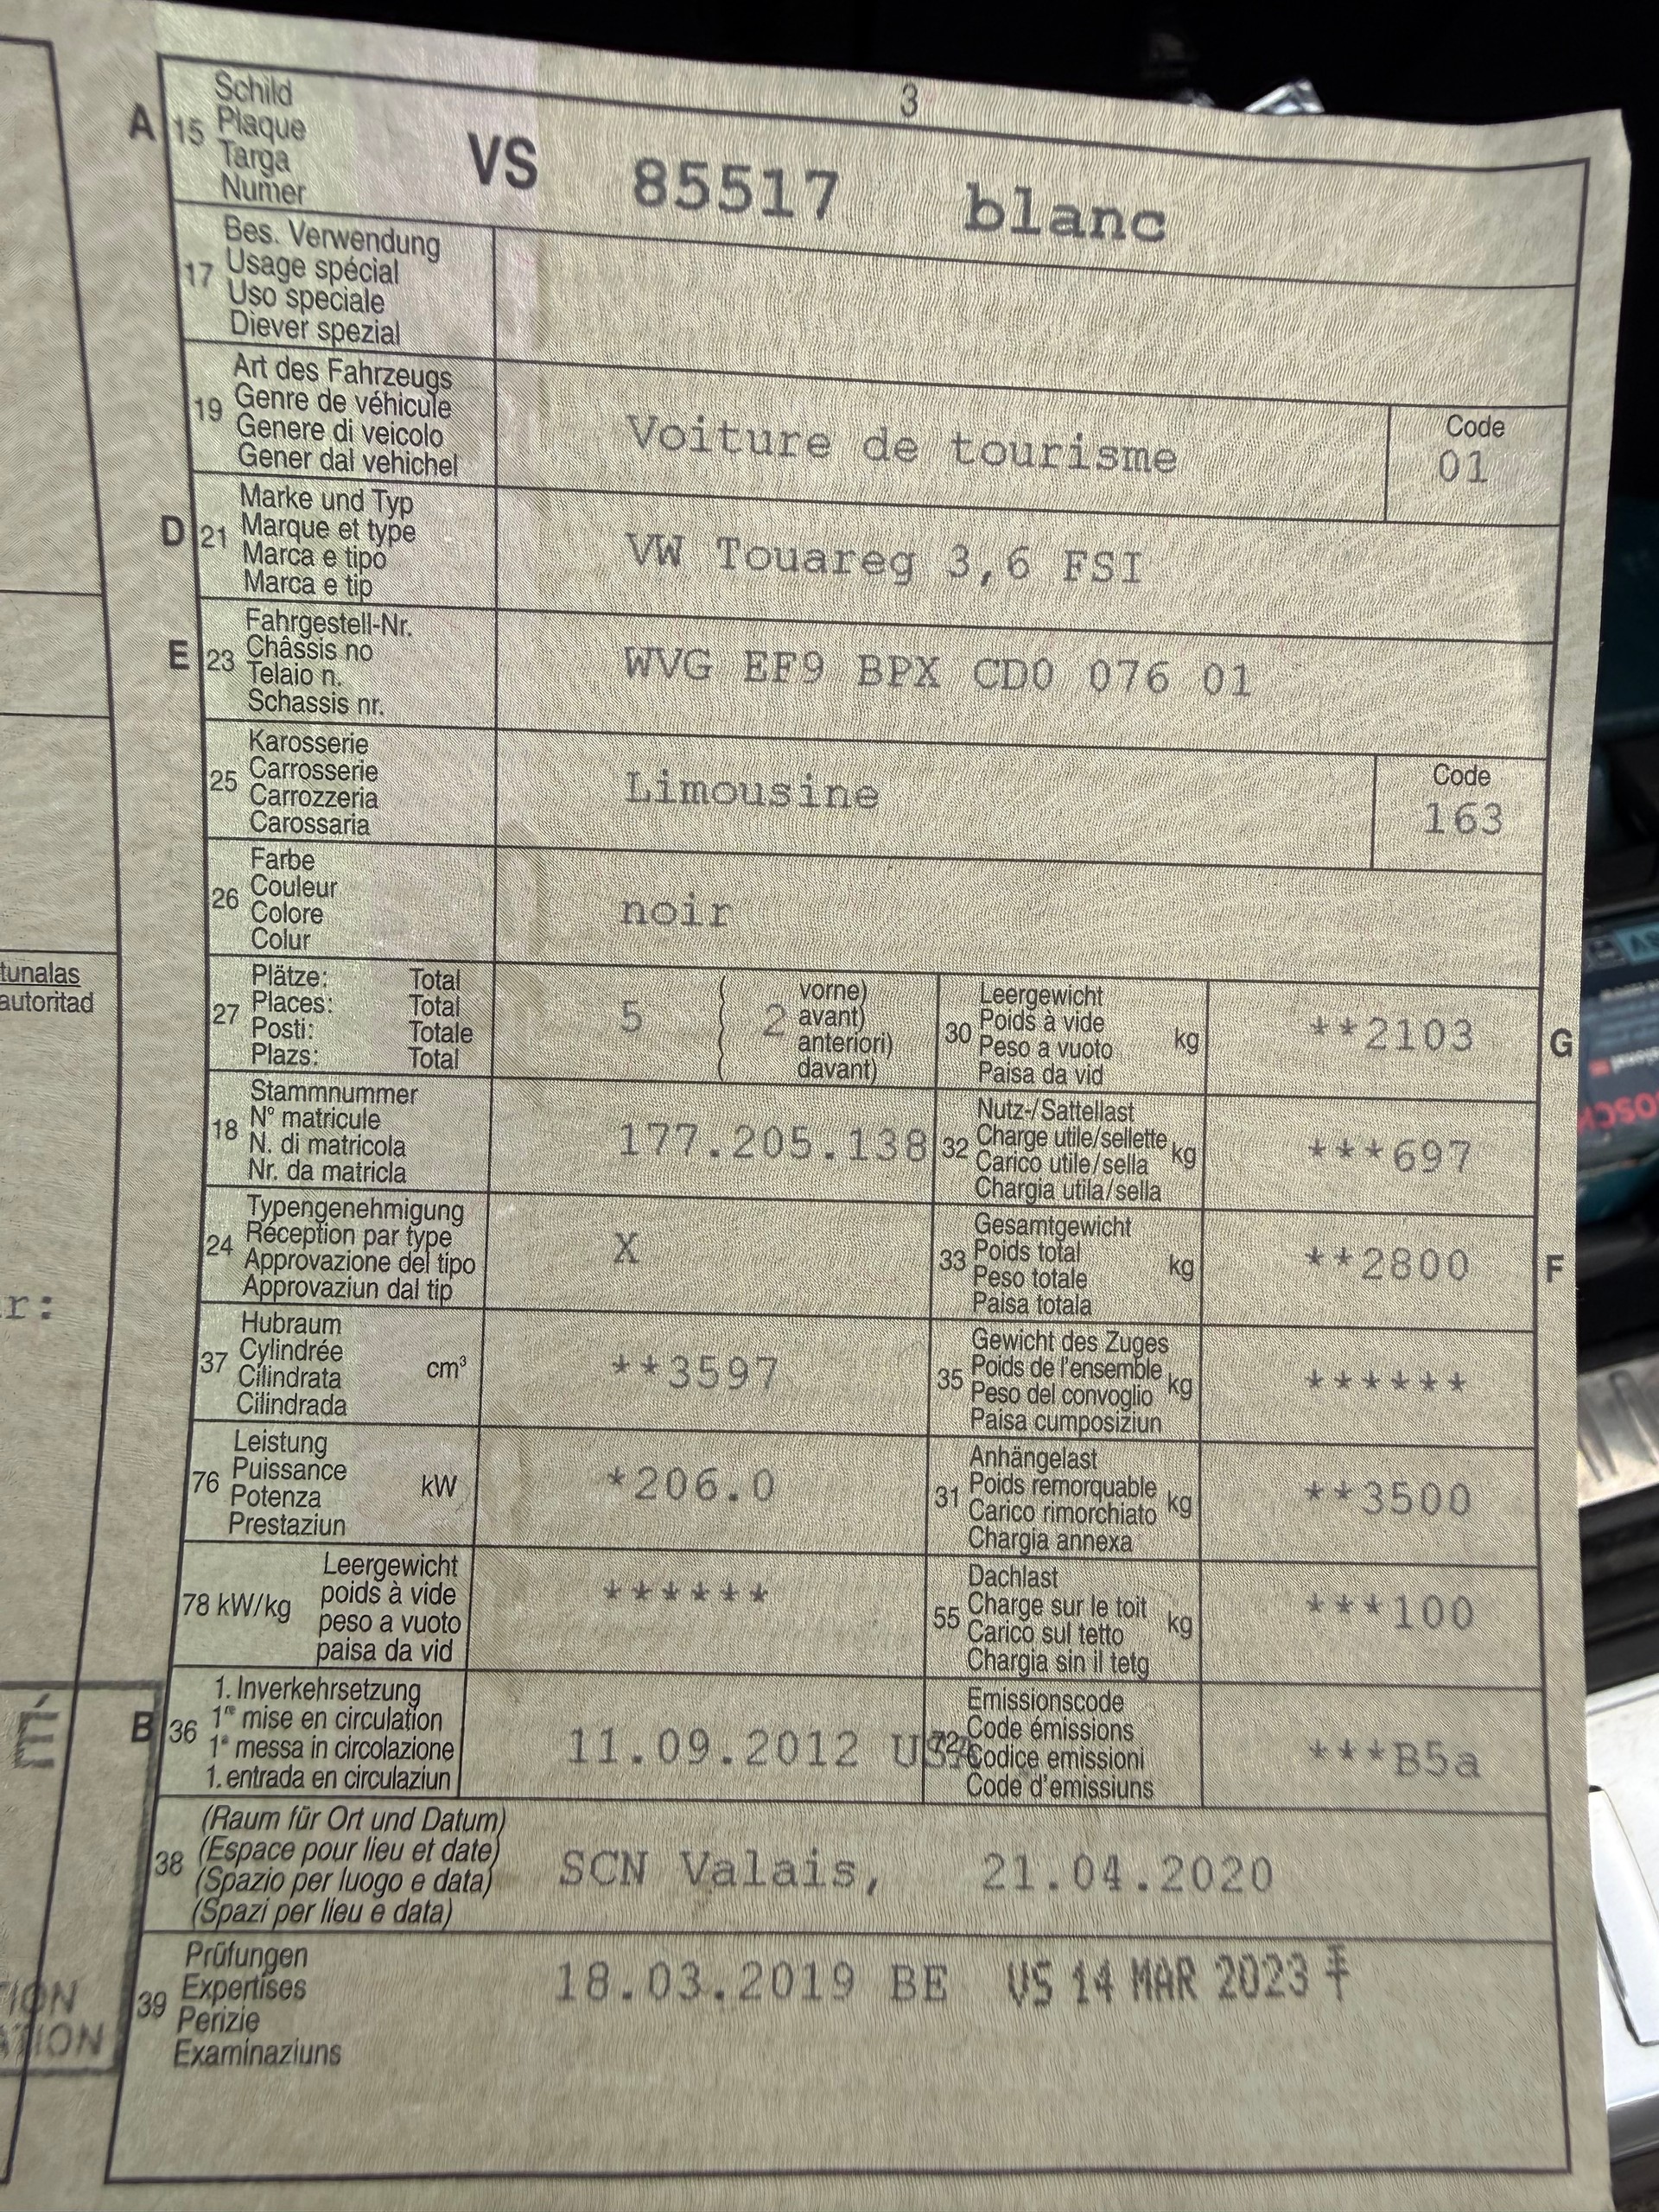 3
A 15 Schild
Plaque
Targa
Numer
VS 85517 blanc
17 Bes. Verwendung
Usage spécial
Uso speciale
Diever spezial
19 Art des Fahrzeugs
Genre de véhicule
Genere di veicolo
Gener dal vehichel
Voiture de tourisme
Code
01
D 21 Marke und Typ
Marque et type
Marca e tipo
Marca e tip
VW Touareg 3,6 FSI
E 23 Fahrgestell-Nr.
Châssis no
Telaio n.
Schassis nr.
WVG EF9 BPX CD0 076 01
25 Karosserie
Carrosserie
Carrozzeria
Carossaria
Limousine
Code
163
26 Farbe
Couleur
Colore
Colur
noir
27 Plätze: Total
Places: Total
Posti: Totale
Plazs: Total
5 ( 2 vorne)
avant)
anteriori)
davant)
30 Leergewicht
Poids à vide
Peso a vuoto
Paisa da vid
kg
**2103
G
18 Stammnummer
N° matricule
N. di matricola
Nr. da matricla
177.205.138
32 Nutz-/Sattellast
Charge utile/sellette
Carico utile/sella
Chargia utila/sella
kg
***697
24 Typengenehmigung
Réception par type
Approvazione del tipo
Approvaziun dal tip
X
33 Gesamtgewicht
Poids total
Peso totale
Paisa totala
kg
**2800
F
37 Hubraum
Cylindrée
Cilindrata
Cilindrada
cm³
**3597
35 Gewicht des Zuges
Poids de l'ensemble
Peso del convoglio
Paisa cumposiziun
kg
******
76 Leistung
Puissance
Potenza
Prestaziun
kW
*206.0
31 Anhängelast
Poids remorquable
Carico rimorchiato
Chargia annexa
kg
**3500
78 kW/kg Leergewicht
poids à vide
peso a vuoto
paisa da vid
******
55 Dachlast
Charge sur le toit
Carico sul tetto
Chargia sin il tetg
kg
***100
B 36 1. Inverkehrsetzung
1re mise en circulation
1a messa in circolazione
1. entrada en circulaziun
11.09.2012 USA
72 Emissionscode
Code émissions
Codice emissioni
Code d'emissiuns
***B5a
38 (Raum für Ort und Datum)
(Espace pour lieu et date)
(Spazio per luogo e data)
(Spazi per lieu e data)
SCN Valais, 21.04.2020
39 Prüfungen
Expertises
Perizie
Examinaziuns
18.03.2019 BE VS 14 MAR 2023
tunalas
autoritad
r:
É
TION
ATION